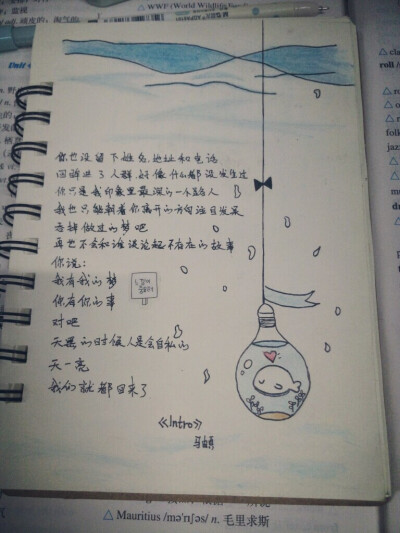 △ WWF (World Wildlife
你也没留下姓名,地址和电话
回归进了人群好像什么都没发生过
你只是我印象里最深的一个路人
我也只能朝着你离开的方向注目发呆
去掉做过的梦吧
再也不会和谁谈论起不存在的故事
你说:
我有我的梦
你有你的事
对吧
天黑的时候人是会自私的
天一亮
我们就都回来了
《Intro》
马頔
△ Mauritius /mə'rɪʃəs/ n. 毛里求斯